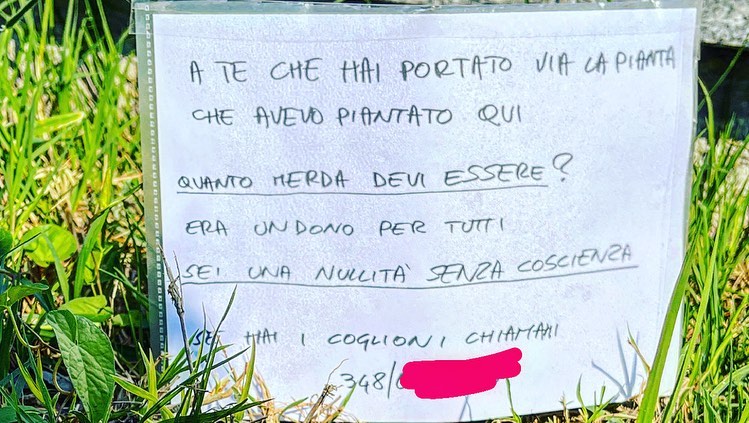 A TE CHE HAI PORTATO VIA LA PIANTA
CHE AVEVO PIANTATO QUI
QUANTO MERDA DEVI ESSERE?
ERA UN DONO PER TUTTI
SEI UNA NULLITÀ SENZA COSCIENZA
SE HAI I COGLIONI CHIAMAMI
348/